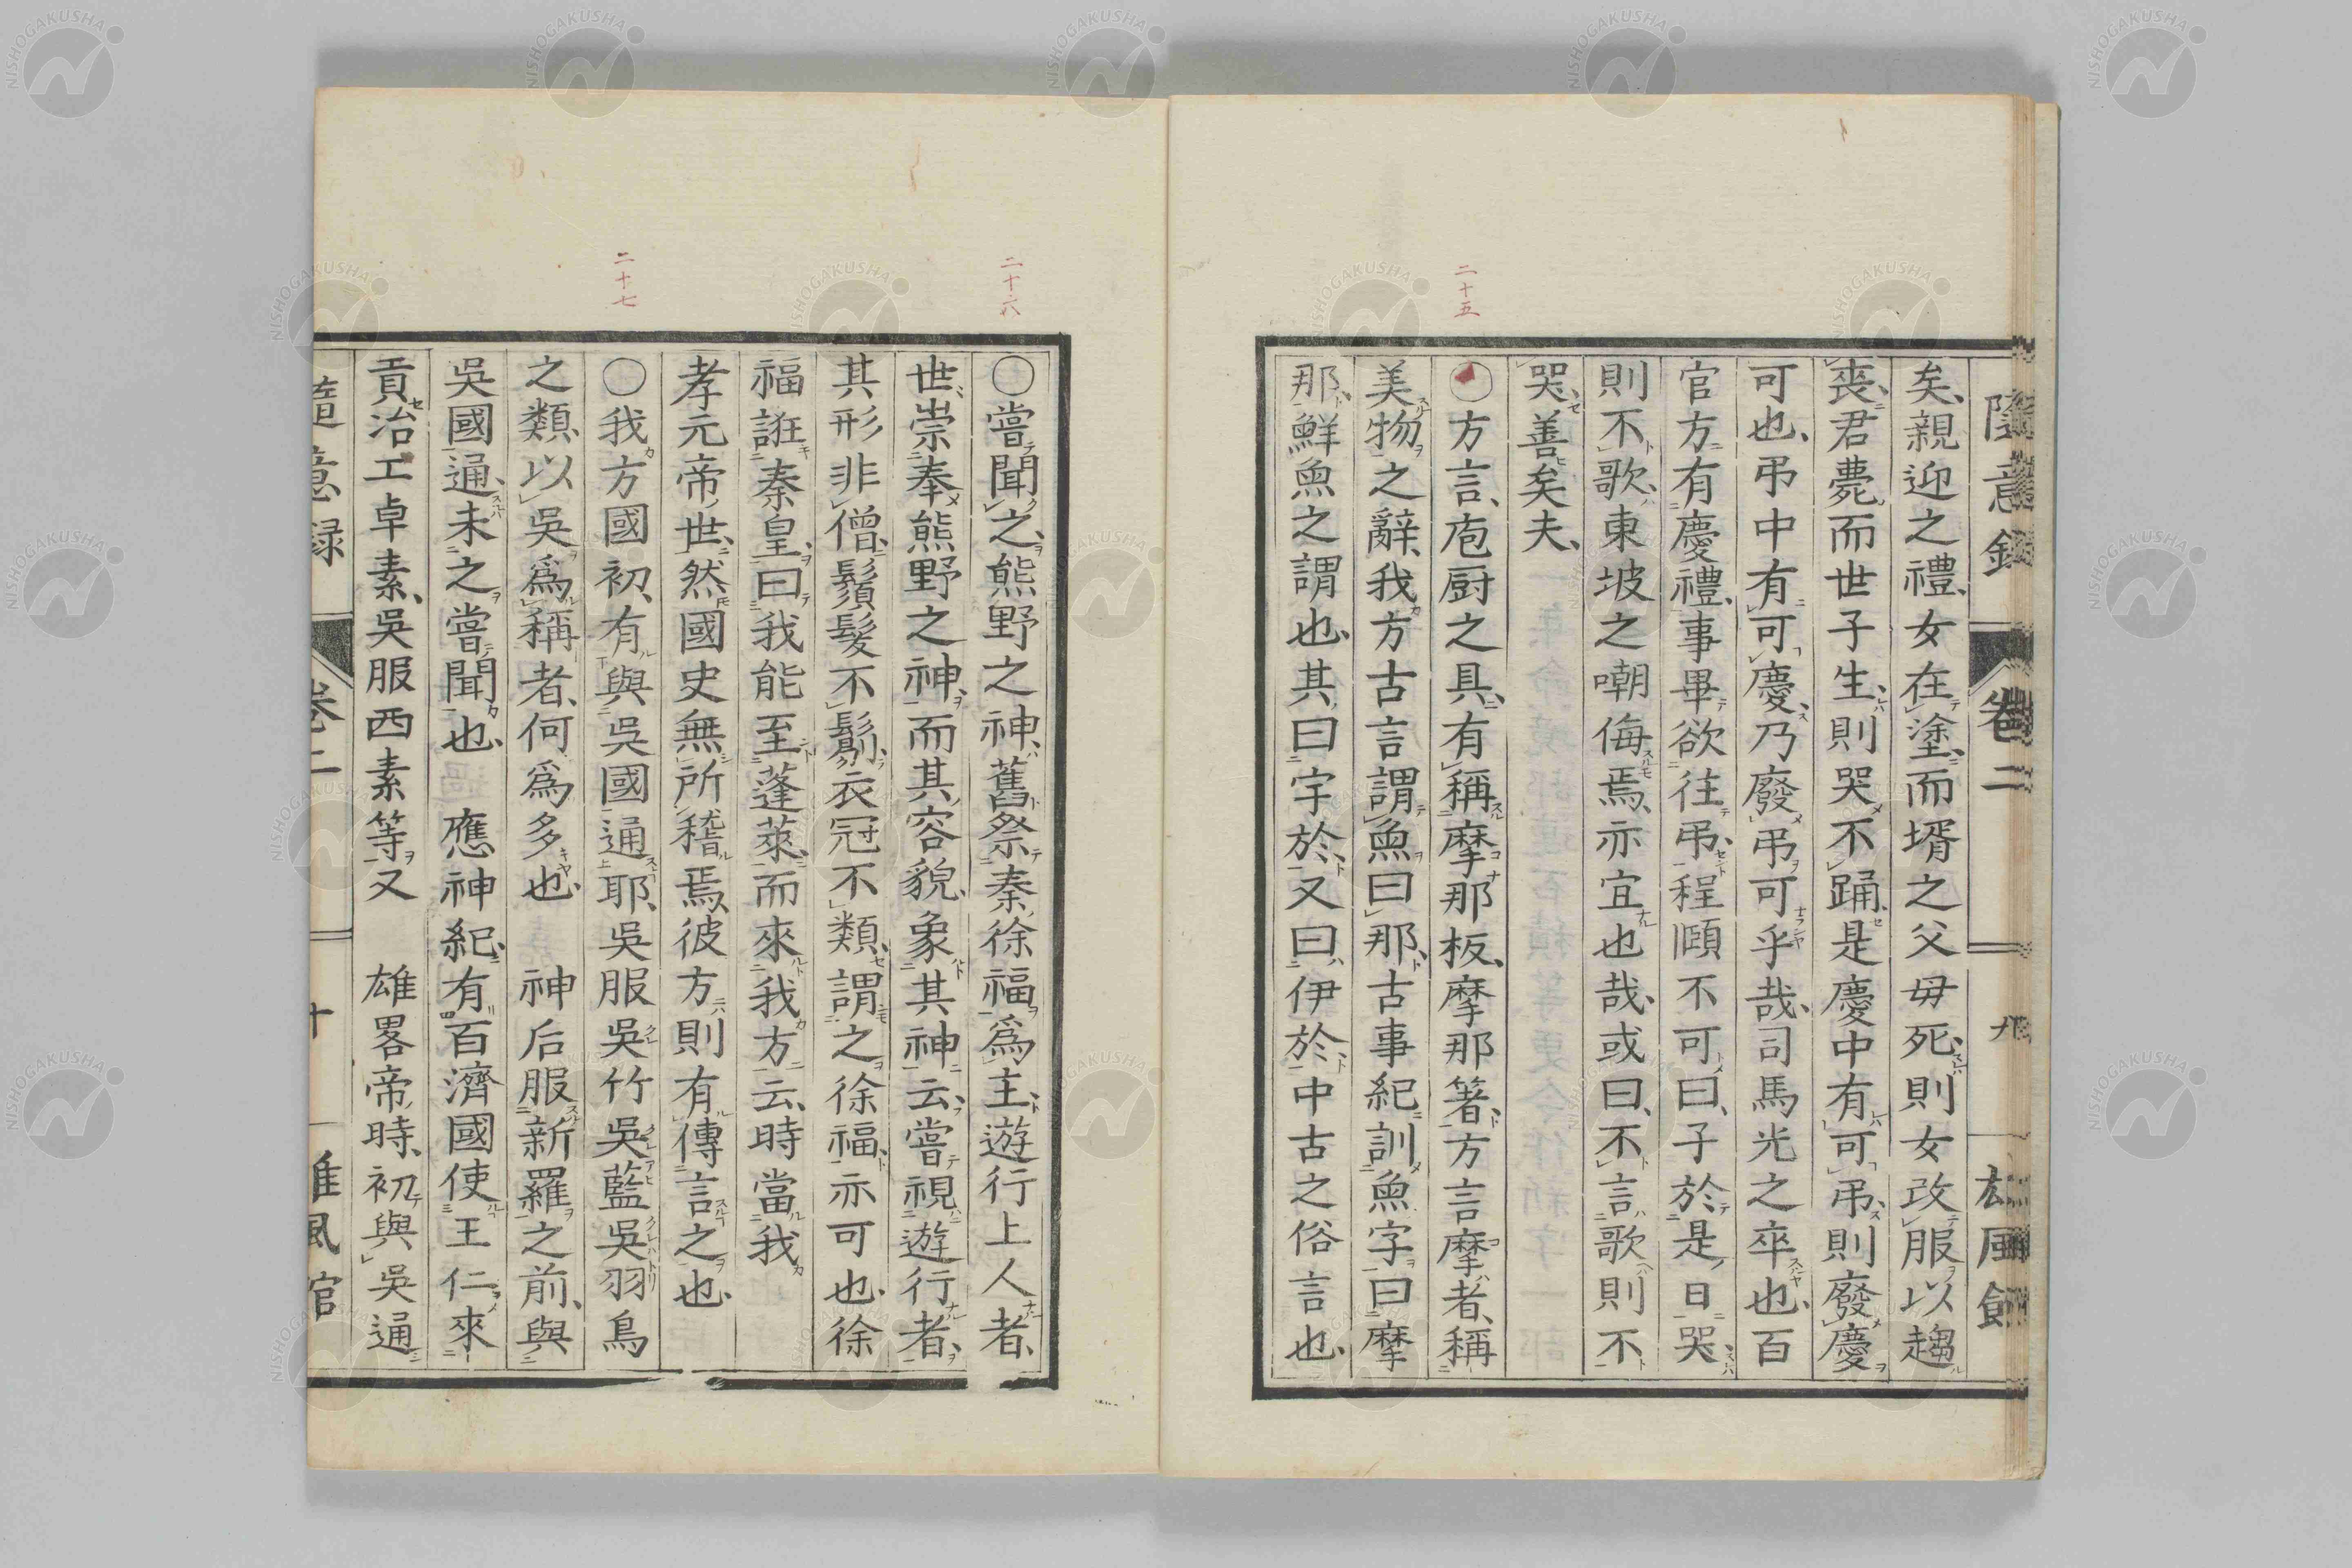 隨意錄 卷二 九 雄風館
矣親迎之禮女在塗而壻之父毋死則女改服以趨
喪君薨而世子生則哭不踊是慶中有可弔則廢慶
可也弔中有可慶乃廢弔可乎哉司馬光之卒也百
官方有慶禮事畢欲往弔程頤不可曰子於是日哭
則不歌東坡之嘲侮焉亦宜也哉或曰不言歌則不
哭善矣夫
二十五
○方言庖厨之具有稱摩那板摩那箸方言摩者稱
美物之辭我方古言謂魚曰那古事紀訓魚字曰摩
那鮮魚之謂也其曰宇於又曰伊於中古之俗言也
二十六
○嘗聞之熊野之神舊祭秦徐福爲主遊行上人者
世崇奉熊野之神而其容貌象其神云嘗視遊行者
其形非僧鬚髮不鬎衣冠不類謂之徐福亦可也徐
福誑秦皇曰我能至蓬萊而來我方云時當我
孝元帝世然國史無所稽焉彼方則有傳言之也
二十七
○我方國初有與吳國通耶吳服吳竹吳藍吳羽鳥
之類以吳爲稱者何爲多也 神后服新羅之前與
吳國通未之嘗聞也 應神紀有百濟國使王仁來
貢治工卓素吳服西素等又 雄畧帝時初與吳通
隨意録 卷二 十 雄風館
NISHOGAKUSHA